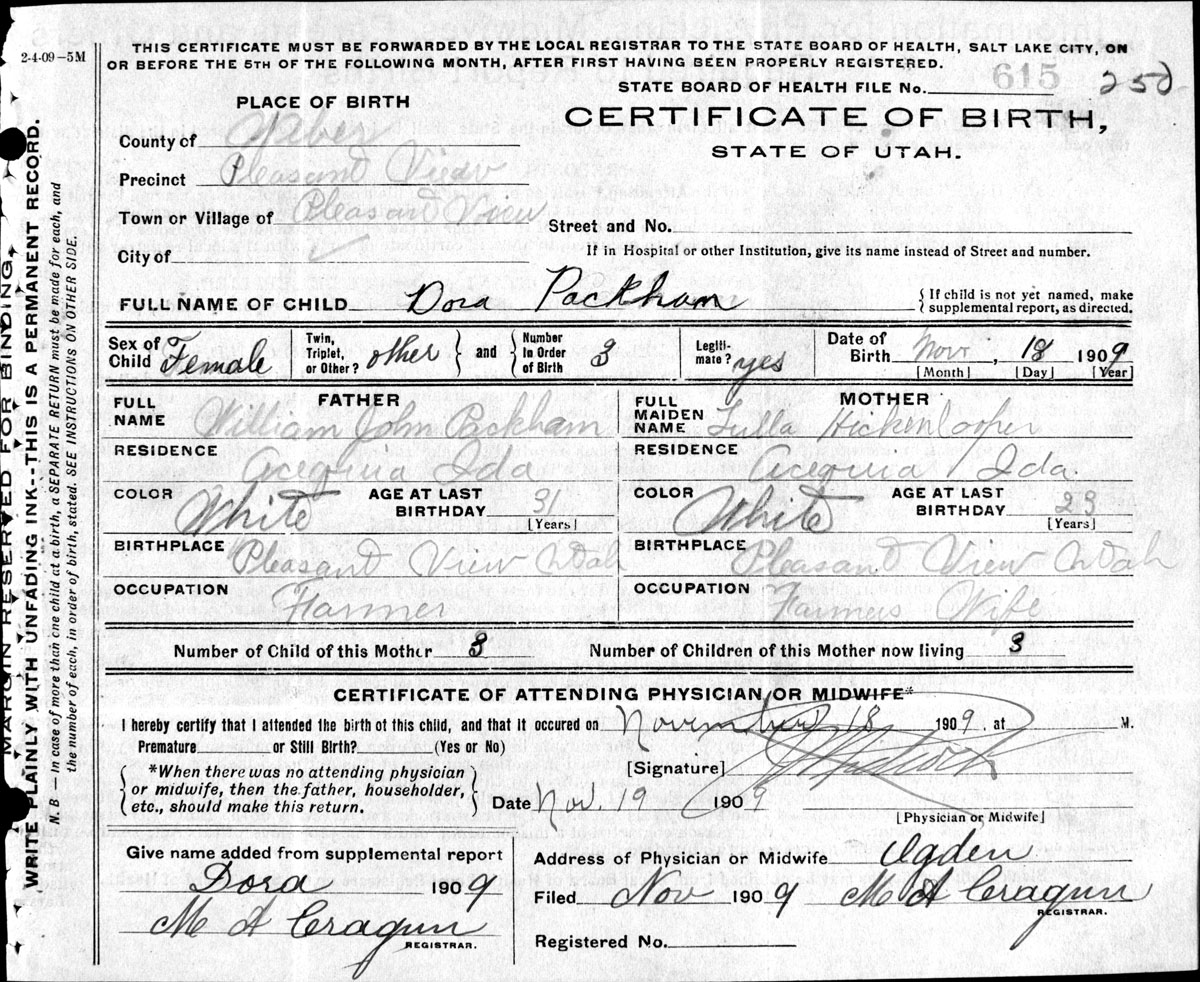 2-4-09—5M
THIS CERTIFICATE MUST BE FORWARDED BY THE LOCAL REGISTRAR TO THE STATE BOARD OF HEALTH, SALT LAKE CITY, ON
OR BEFORE THE 5TH OF THE FOLLOWING MONTH, AFTER FIRST HAVING BEEN PROPERLY REGISTERED.
STATE BOARD OF HEALTH FILE No. 615 250
PLACE OF BIRTH
CERTIFICATE OF BIRTH,
STATE OF UTAH.
County of Weber
Precinct Pleasant View
Town or Village of Pleasant View
Street and No.
City of
If in Hospital or other Institution, give its name instead of Street and number.
FULL NAME OF CHILD Dora Packham
{ If child is not yet named, make
supplemental report, as directed.
Sex of Child Female
Twin, Triplet, or Other? other } and { Number In Order of Birth 3
Legiti- mate? yes
Date of Birth Nov. , 18 1909
[Month] [Day] [Year]
FATHER
FULL NAME William John Packham
RESIDENCE Acequia Ida
COLOR White AGE AT LAST BIRTHDAY 31 [Years]
BIRTHPLACE Pleasant View Utah
OCCUPATION Farmer
MOTHER
FULL MAIDEN NAME Lulla Hickenlooper
RESIDENCE Acequia Ida.
COLOR White AGE AT LAST BIRTHDAY 23 [Years]
BIRTHPLACE Pleasant View Utah
OCCUPATION Farmers Wife
Number of Child of this Mother 3 Number of Children of this Mother now living 3
CERTIFICATE OF ATTENDING PHYSICIAN OR MIDWIFE*
I hereby certify that I attended the birth of this child, and that it occured on November 18 1909, at M.
Premature or Still Birth? (Yes or No)
{ *When there was no attending physician
or midwife, then the father, householder,
etc., should make this return. }
[Signature]
Date Nov. 19 1909
[Physician or Midwife]
Give name added from supplemental report
Dora 1909
M A Cragun
REGISTRAR.
Address of Physician or Midwife Ogden
Filed Nov 1909 M A Cragun
REGISTRAR.
Registered No.
MARGIN RESERVED FOR BINDING,
WRITE PLAINLY WITH UNFADING INK--THIS IS A PERMANENT RECORD.
N. B — In case of more than one child at a birth, a SEPARATE RETURN must be made for each, and
the number of each, in order of birth, stated. SEE INSTRUCTIONS ON OTHER SIDE.